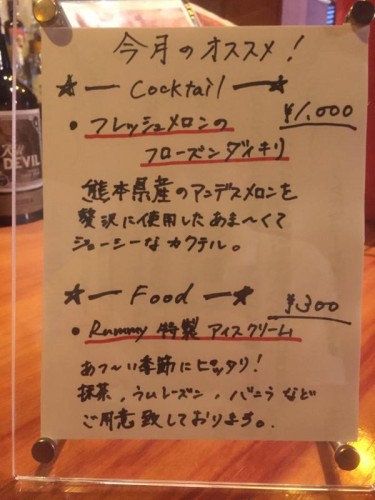 今月のオススメ!
★ー Cocktail ー★
¥1,000
• フレッシュメロンの
フローズンダイキリ
熊本県産のアンデスメロンを
贅沢に使用したあま〜くて
ジューシーなカクテル。
★ー Food ー★
¥300
• Rummy 特製 アイスクリーム
あつ〜い季節にピッタリ!
抹茶、ラムレーズン、バニラなど
ご用意致しております。
DEVIL